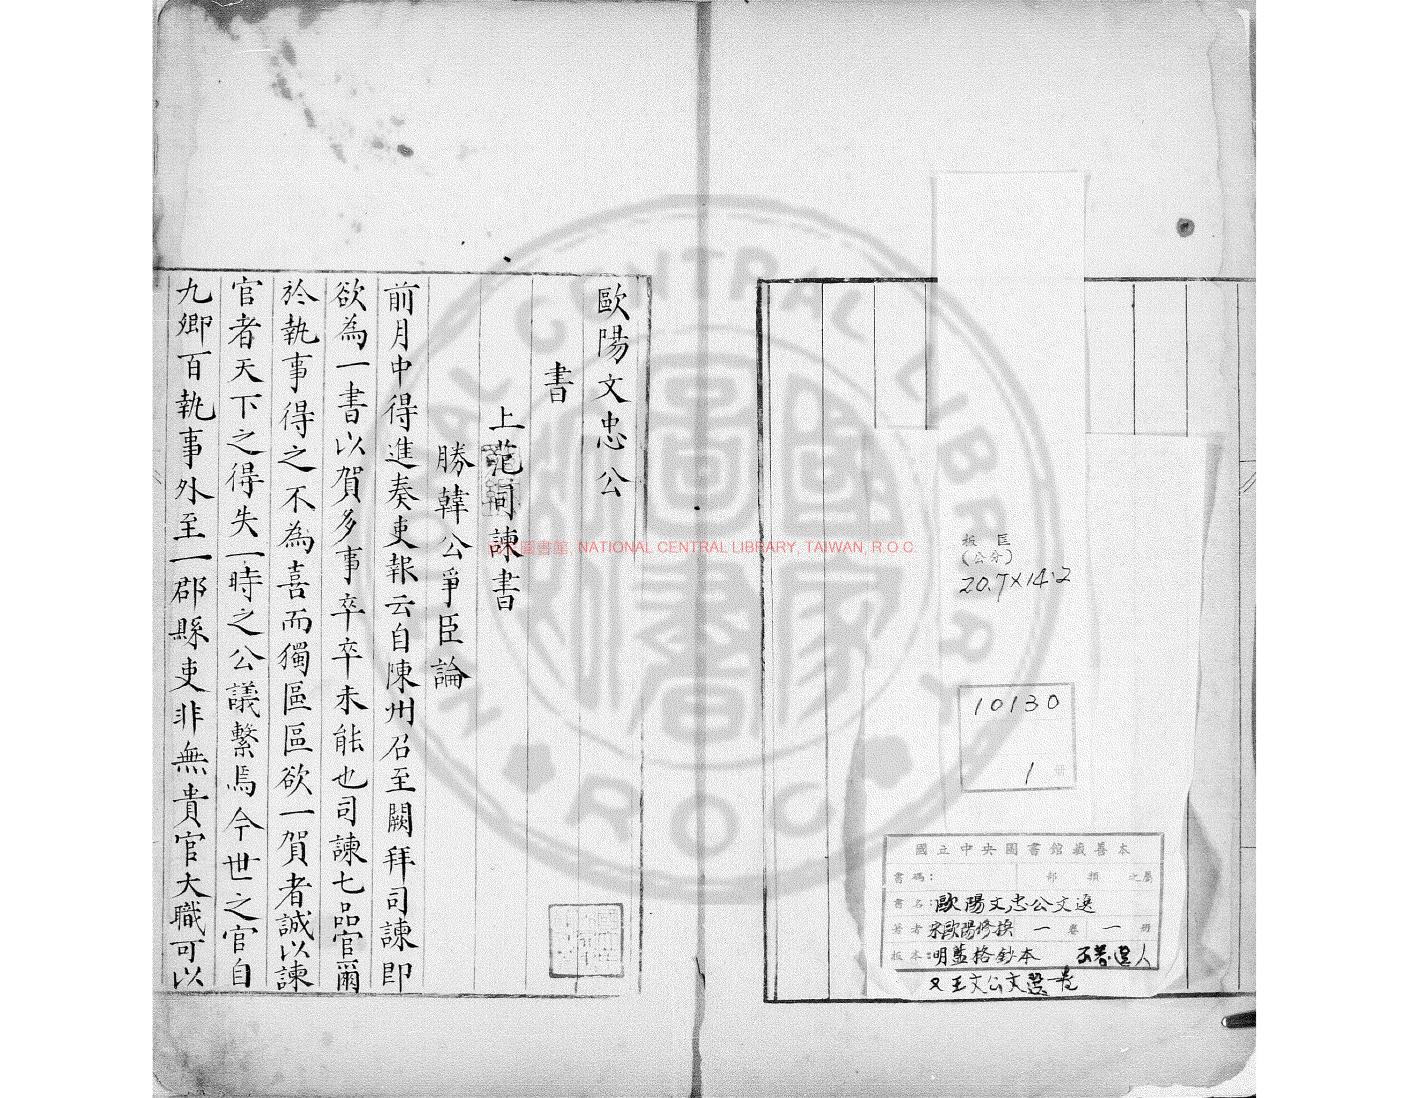 板匡
(公分)
20.7×14.2
10130
1 冊
國立中央圖書館藏善本
書碼: 部 類 之屬
書名:歐陽文忠公文選
著者 宋歐陽修撰 一卷 一冊
板本:明藍格鈔本 不著選人
又王文公文選一卷
歐陽文忠公
書
上范司諫書
勝韓公爭臣論
前月中得進奏吏報云自陳州召至闕拜司諫即
欲為一書以賀多事卒卒未能也司諫七品官爾
於執事得之不為喜而獨區區欲一賀者誠以諫
官者天下之得失一時之公議繫焉今世之官自
九卿百執事外至一郡縣吏非無貴官大職可以
圖書館, NATIONAL CENTRAL LIBRARY, TAIWAN, R.O.C.
NATIONAL CENTRAL LIBRARY
ROC